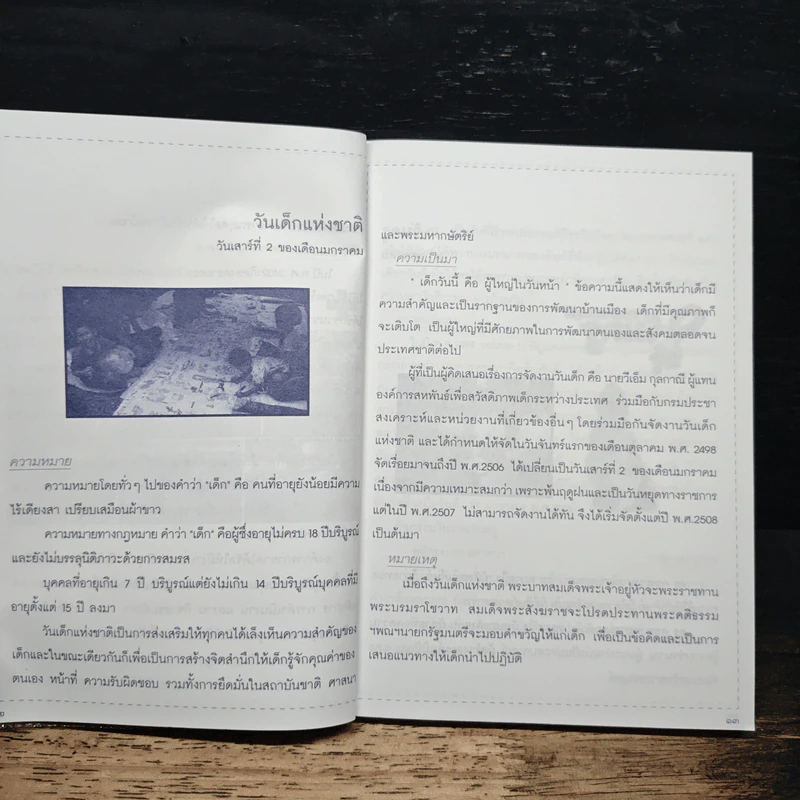 วันเด็กแห่งชาติ
วันเสาร์ที่ 2 ของเดือนมกราคม
ความหมาย
ความหมายโดยทั่วๆ ไปของคำว่า "เด็ก" คือ คนที่อายุยังน้อยมีความ
ไร้เดียงสา เปรียบเสมือนผ้าขาว
ความหมายทางกฎหมาย คำว่า "เด็ก" คือผู้ซึ่งอายุไม่ครบ 18 ปีบริบูรณ์
และยังไม่บรรลุนิติภาวะด้วยการสมรส
บุคคลที่อายุเกิน 7 ปี บริบูรณ์แต่ยังไม่เกิน 14 ปีบริบูรณ์บุคคลที่มี
อายุตั้งแต่ 15 ปี ลงมา
วันเด็กแห่งชาติเป็นการส่งเสริมให้ทุกคนได้เล็งเห็นความสำคัญของ
เด็กและในขณะเดียวกันก็เพื่อเป็นการสร้างจิตสำนึกให้เด็กรู้จักคุณค่าของ
ตนเอง หน้าที่ ความรับผิดชอบ รวมทั้งการยึดมั่นในสถาบันชาติ ศาสนา
และพระมหากษัตริย์
ความเป็นมา
" เด็กวันนี้ คือ ผู้ใหญ่ในวันหน้า " ข้อความนี้แสดงให้เห็นว่าเด็กมี
ความสำคัญและเป็นรากฐานของการพัฒนาบ้านเมือง เด็กที่มีคุณภาพก็
จะเติบโต เป็นผู้ใหญ่ที่มีศักยภาพในการพัฒนาตนเองและสังคมตลอดจน
ประเทศชาติต่อไป
ผู้ที่เป็นผู้คิดเสนอเรื่องการจัดงานวันเด็ก คือ นายวีเอ็ม กุลกาณี ผู้แทน
องค์การสหพันธ์เพื่อสวัสดิภาพเด็กระหว่างประเทศ ร่วมมือกับกรมประชา
สงเคราะห์และหน่วยงานที่เกี่ยวข้องอื่นๆ โดยร่วมมือกันจัดงานวันเด็ก
แห่งชาติ และได้กำหนดให้จัดในวันจันทร์แรกของเดือนตุลาคม พ.ศ. 2498
จัดเรื่อยมาจนถึงปี พ.ศ.2506 ได้เปลี่ยนเป็นวันเสาร์ที่ 2 ของเดือนมกราคม
เนื่องจากมีความเหมาะสมกว่า เพราะพ้นฤดูฝนและเป็นวันหยุดทางราชการ
แต่ในปี พ.ศ.2507 ไม่สามารถจัดงานได้ทัน จึงได้เริ่มจัดตั้งแต่ปี พ.ศ.2508
เป็นต้นมา
หมายเหตุ
เมื่อถึงวันเด็กแห่งชาติ พระบาทสมเด็จพระเจ้าอยู่หัวจะพระราชทาน
พระบรมราโชวาท สมเด็จพระสังฆราชจะโปรดประทานพระคติธรรม
ฯพณฯนายกรัฐมนตรีจะมอบคำขวัญให้แก่เด็ก เพื่อเป็นข้อคิดและเป็นการ
เสนอแนวทางให้เด็กนำไปปฏิบัติ
๑๓